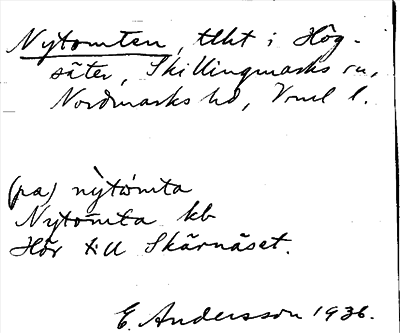 Nytomten, tlht i Hög-
säter, Skillingmarks sn,
Nordmarks hd, Vrml l.
(pa) nỳtòmta
Nytomta kb
Hör t. u Skärnäset.
E. Andersson 1936.